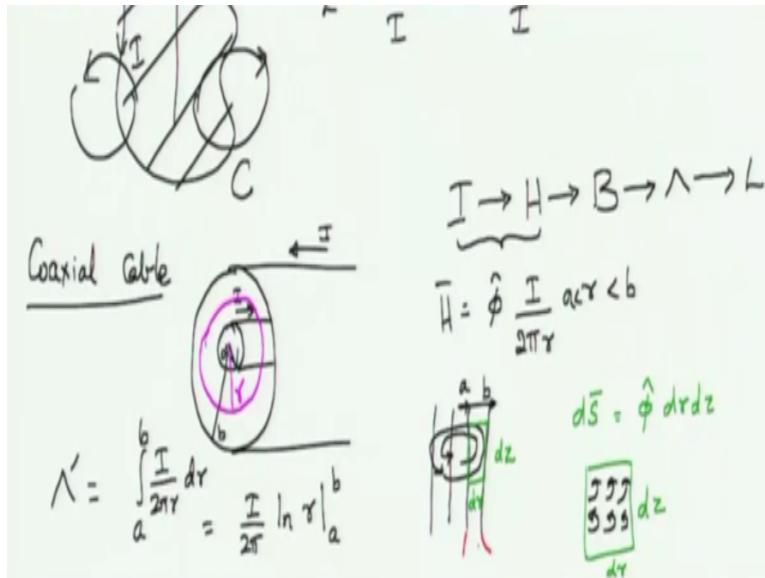 I
I I
C
I → H → B → Λ → L
Coaxial Cable
I
I
a
r
b
H̄ = φ̂ I/2πr a<r<b
a b
dz
dr
dS̄ = φ̂ drdz
dz
dr
Λ' = ∫_a^b I/2πr dr = I/2π ln r|_a^b